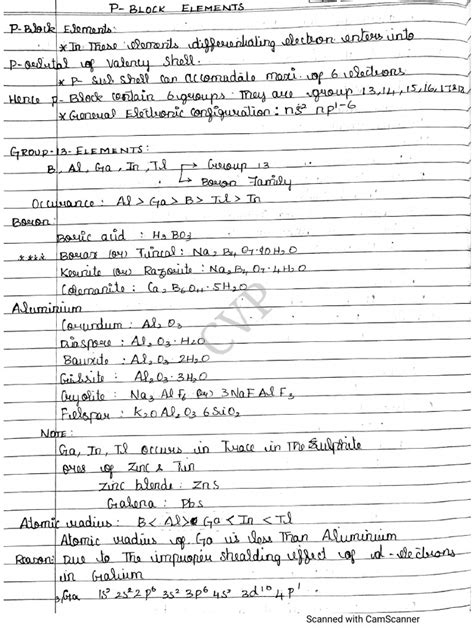 P- BLOCK ELEMENTS
P-Block Elements:
* In These elements differentiating electron enters into
P-orbital of valency shell.
* P- Sub shell can accomadate maxi. of 6 electrons
Hence p- Block contain 6 groups. They are group 13,14,15,16,17&18
* General Electronic configuration: ns² np¹⁻⁶
GROUP-13- ELEMENTS:
B, Al, Ga, In, Tl → Group 13
→ Boron Family
Occurance: Al > Ga > B > Tl > In
Boron:
Boric acid : H₃ BO₃
**** Borax (or) Tincal: Na₂ B₄ O₇.10H₂O
Kernite (or) Razorite: Na₂ B₄ O₇.4H₂O
Colemanite: Ca₂ B₆O₁₁.5H₂O
Aluminium
Corundum: Al₂O₃
Diaspore : Al₂O₃.H₂O
Bauxite : Al₂O₃.2H₂O
Gibsite : Al₂O₃.3H₂O
Cryolite : Na₃ Al F₆ (or) 3NaF Al F₃
Fieldspar : K₂O Al₂O₃ 6SiO₂
CVP
NOTE:
Ga, In, Tl occurs in Trace in The Sulphite
ores of Zinc & Tin
Zinc blende: ZnS
Galena: PbS
Atomic radius: B < Al > Ga < In < Tl
Atomic radius of Ga is less Than Aluminium
Reason: Due to The improper shealding effect of d-electrons
in Galium
Ga 1s² 2s² 2p⁶ 3s² 3p⁶ 4s² 3d¹⁰ 4p¹
Scanned with CamScanner